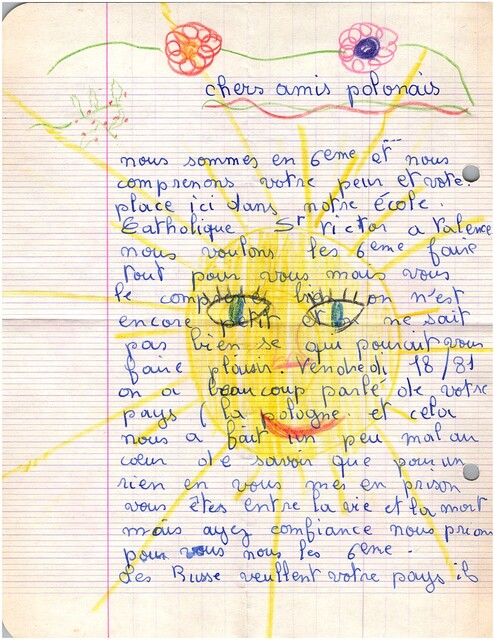 chers amis polonais
nous sommes en 6eme et nous
comprenons votre peur et vote.
place ici dans notre école.
Catholique St victor a Valence
nous voulons les 6eme faire
tout pour vous mais vous
le comprenez bien on n'est
encore petit et on ne sait
pas bien se qui pourait vous
faire plaisir. Vendredi 18/81
on a beaucoup parlé de votre
pays (la pologne. et cela
nous a fait un peu mal au
cœur de savoir que pour un
rien en vous mes en prison
vous êtes entre la vie et la mort
mais ayez comfiance nous prions
pour vous nous les 6eme.
Les Russe veullent votre pays ils